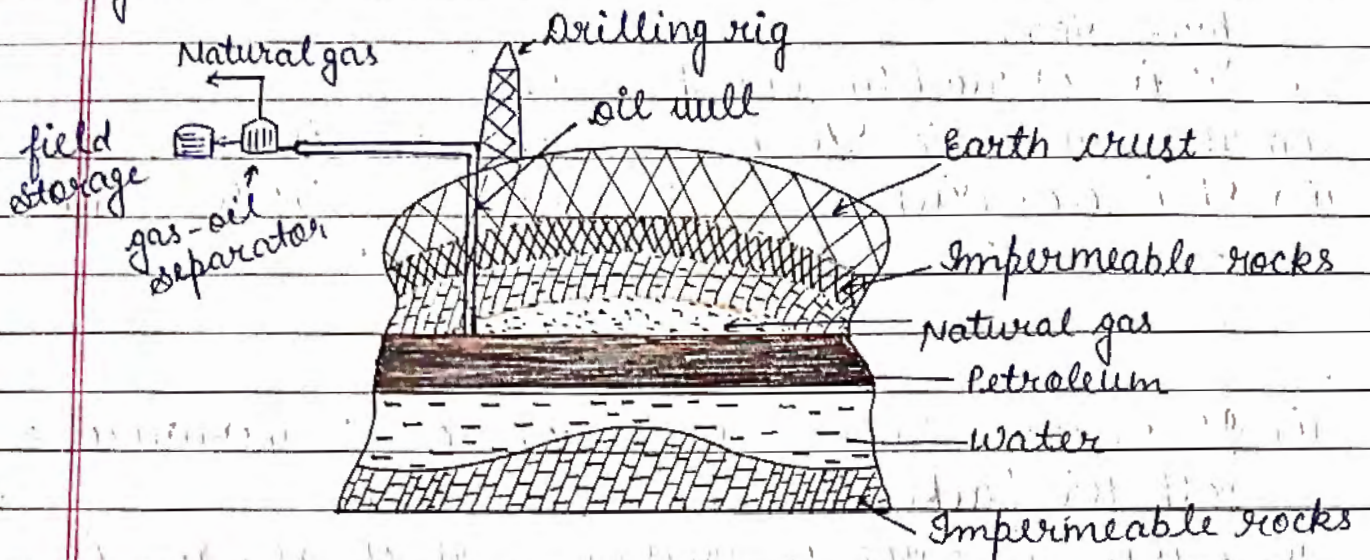 Drilling rig
Natural gas
oil well
field
storage
gas-oil
separator
Earth crust
Impermeable rocks
Natural gas
Petroleum
Water
Impermeable rocks